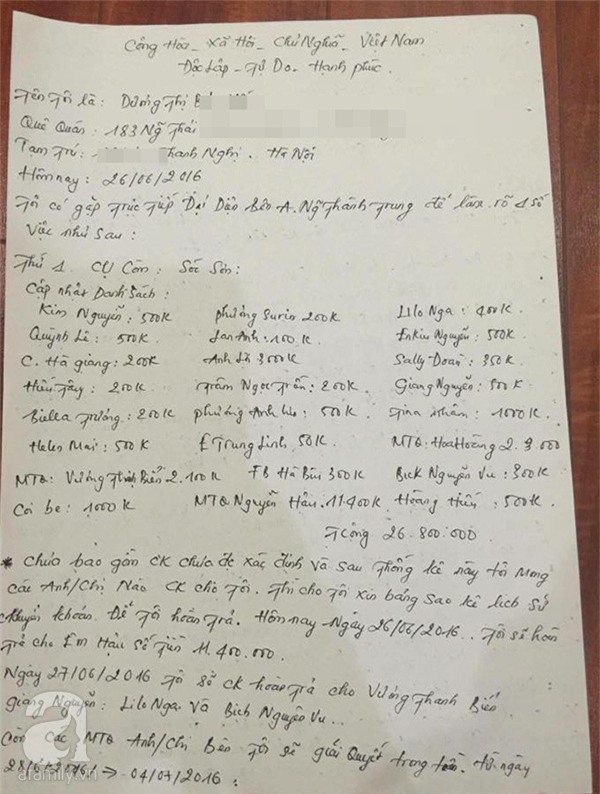 Cộng Hòa - Xã Hội - Chủ Nghĩa - Việt Nam
Độc Lập - Tự Do - Hạnh phúc.
Tên Tôi là: Dương Thị
Quê Quán: 183 Ngõ Thái
Tạm Trú: Thanh Nghị. Hà Nội
Hôm nay: 26/06/2016
Tôi có gặp Trực Tiếp Đại Diện Bên A. Ng Thành Trung để làm rõ 1 số
Việc như sau:
Thứ 1. Cụ Còn: Sóc Sơn:
Cập nhật Danh Sách:
Kim Nguyễn: 500K phương Surin 200K Lilo Nga: 400K
Quỳnh Lê: 500K Lan Anh: 100K. Enkin Nguyễn: 500K
C. Hà giang: 200K Anh 300K Sally Doan: 350K
200K Trâm Ngọc Trần: 200K Giang Nguyễn: 500K
Biella Trương: 200K phương Anh 500K Tina Nhâm: 1000K
Helen Mai: 500K E Trung Linh 50K MTQ: Hoa Hoàng 2.3.000
MTQ: Vương Thanh Biển 2.100K FB Hà Bin 300K Bick Nguyễn Vu: 300K
Coi be: 1000K MTQ Nguyễn Hậu: 11400K Hoàng Hiếu: 500K
T Cộng 26.800.000
* Chưa bao gồm CK chưa đc xác định và sau thống kê này tôi mong
các Anh/Chị Nào CK cho tôi. Thì cho tôi xin bảng sao kê lịch sử
chuyển khoản. Để tôi hoàn trả. Hôm nay Ngày 26/06/2016.. Tôi sẽ hoàn
trả cho Em Hậu số tiền 11.400.000.
Ngày 27/06/2016 Tôi sẽ CK hoàn trả cho Vương Thanh Biển
Giang Nguyễn: Lilo Nga Và Bich Nguyễn Vu...
Còn các MTQ Anh/Chị Bên Tôi sẽ giải Quyết trong từ ngày
28/6/2016 => 04/07/2016.
afamily.vn